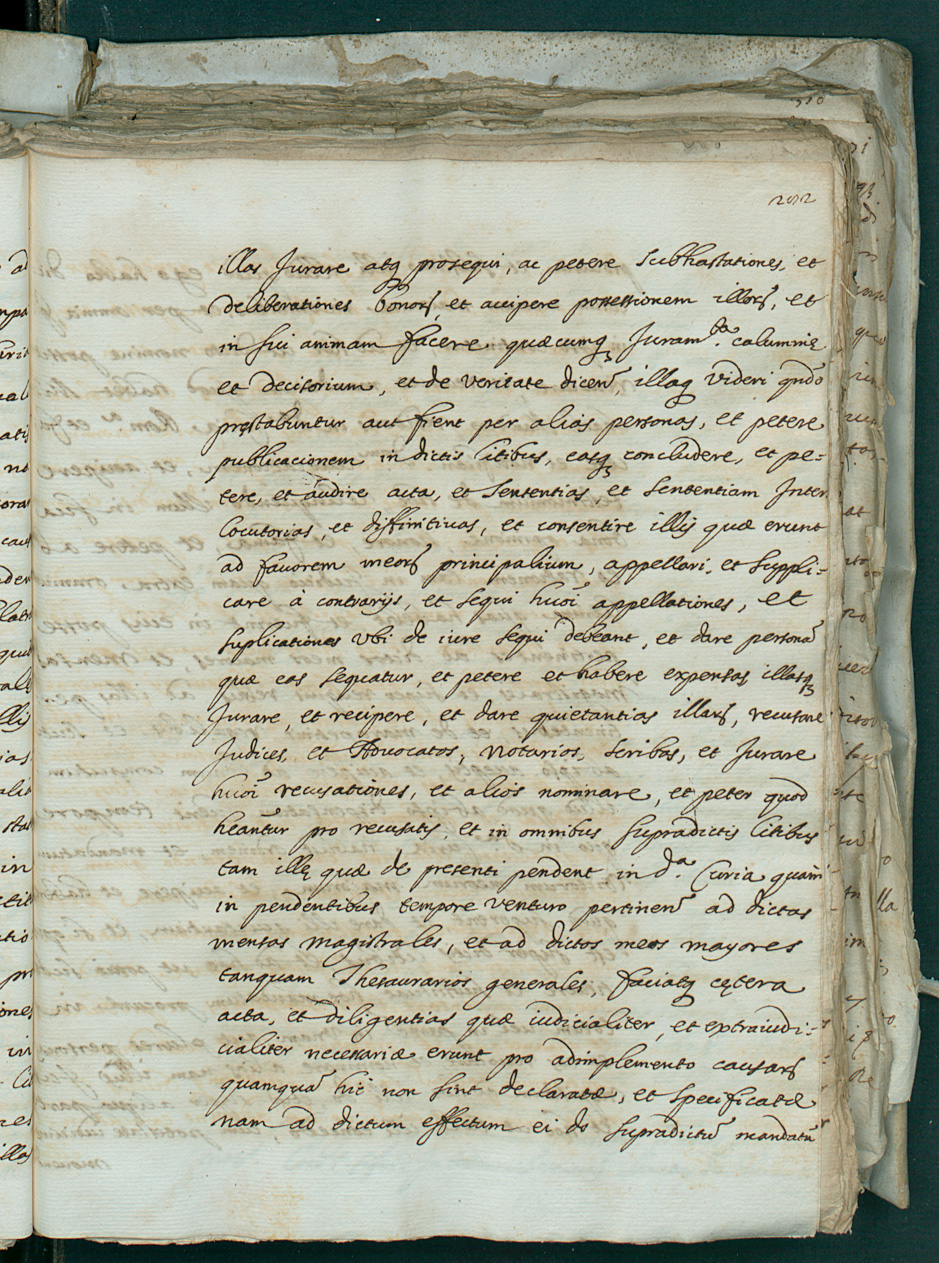 292
illas Jurare atq̃ prosequi, ac petere Subhastationes, et
deliberationes bonorũ, et accipere possessionem illorũ, et
in sui animam facere quæcumq̃ Juram.ta calumnię
et decisorium, et de veritate dicenđ, illaq̃ videri qñdo
pręstabuntur aut fient per alias personas, et petere
publicacionem in dictis litibus, easq̃ concludere, et pe-
tere, et audire acta, et Sententias, et Sententiam Inter
locutorias, et diffinitivas, et consentire illis quæ erunt
ad favorem meorũ principalium, appellari, et suppli-
care à contrarijs, et sequi hm̃oi appellationes, et
suplicationes vbi de iure sequi debeant, et dare personã
quæ eas sequatur, et petere et habere expensas illasq̃
Jurare, et recipere, et dare quietantias illarũ, recusare
Judices, et Advocatos, Notarios, scribas, et Jurare
hm̃oi recusationes, et alios nominare, et peter quod
heãntur pro recusatis, et in omnibus supradictis litibus
tam illę quæ de presenti pendent in d.a Curia quam
in pendentibus tempore venturo pertinenđ ad dictas
mensas magistrales, et ad dictos meos mayores
tanquam Thesaurarios generales, faciatq̃ cętera
acta, et diligentias quæ iudicialiter, et extraiudi-
cialiter necessariæ erunt pro adimplemento causarũ
quamquã hic non sint declaratæ, et specificatæ
nam ad dictum effectum ei do supradictũ mandatũ